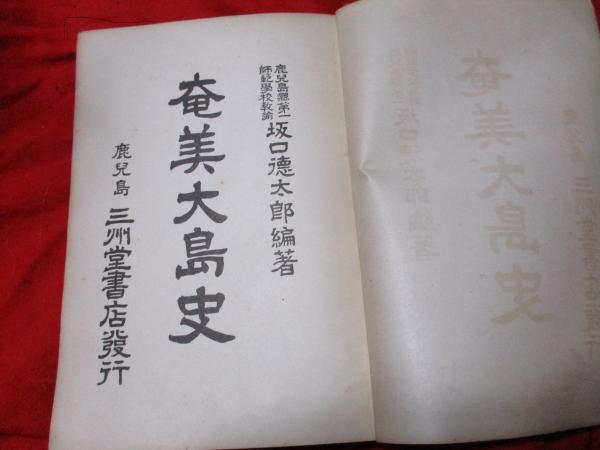 鹿兒島縣第一
師範學校教諭
坂口德太郎編著
奄美大島史
鹿兒島 三州堂書店發行